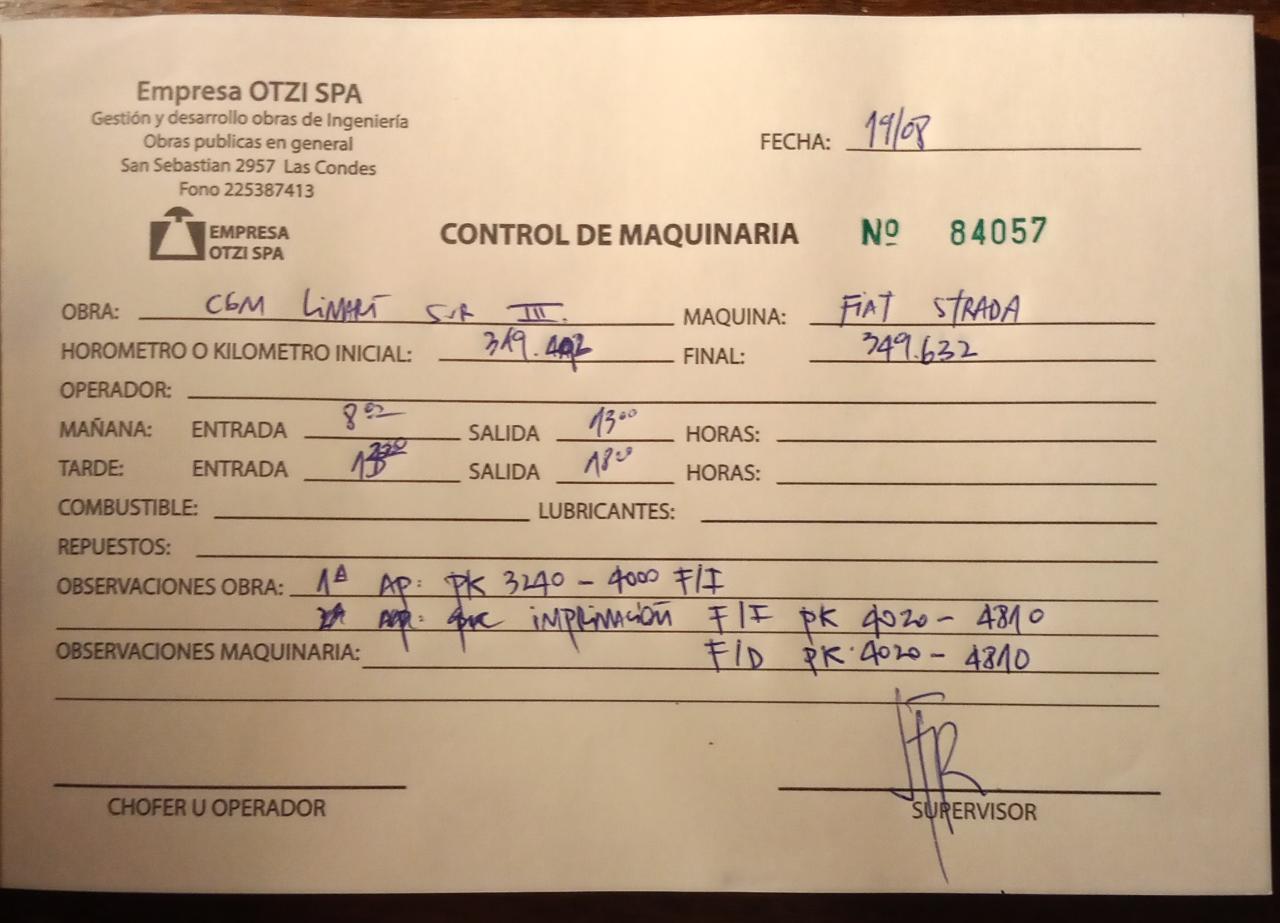 Empresa OTZI SPA
Gestión y desarrollo obras de Ingeniería
Obras publicas en general
San Sebastian 2957 Las Condes
Fono 225387413
EMPRESA
OTZI SPA
FECHA: 19/08
CONTROL DE MAQUINARIA Nº 84057
OBRA: CGM LIMARÍ SUR III. MAQUINA: FIAT STRADA
HOROMETRO O KILOMETRO INICIAL: FINAL: 349.632
OPERADOR:
MAÑANA: ENTRADA 8 SALIDA 13⁰⁰ HORAS:
TARDE: ENTRADA SALIDA 18⁰⁰ HORAS:
COMBUSTIBLE: LUBRICANTES:
REPUESTOS:
OBSERVACIONES OBRA: 1ª AP: PK 3240 - 4000 F/I
IMPRIMACIÓN F/I PK 4020 - 4810
OBSERVACIONES MAQUINARIA: F/D PK 4020 - 4810
CHOFER U OPERADOR
SUPERVISOR